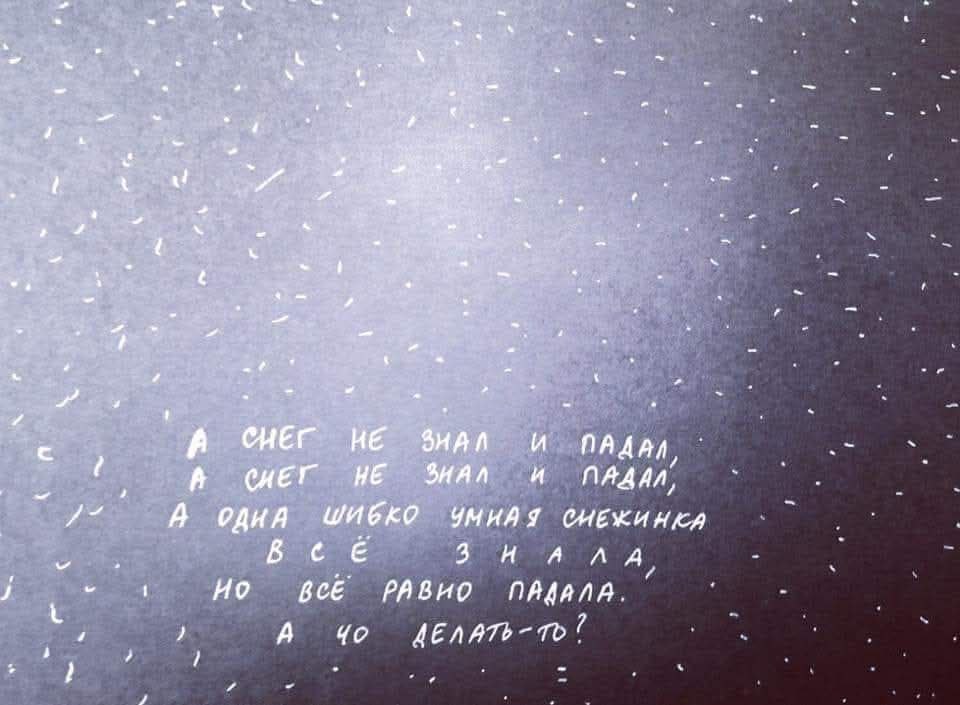 А СНЕГ НЕ ЗНАЛ И ПАДАЛ,
А СНЕГ НЕ ЗНАЛ И ПАДАЛ,
А ОДНА ШИБКО УМНАЯ СНЕЖИНКА
ВСЁ ЗНАЛА,
НО ВСЁ РАВНО ПАДАЛА.
А ЧО ДЕЛАТЬ-ТО?